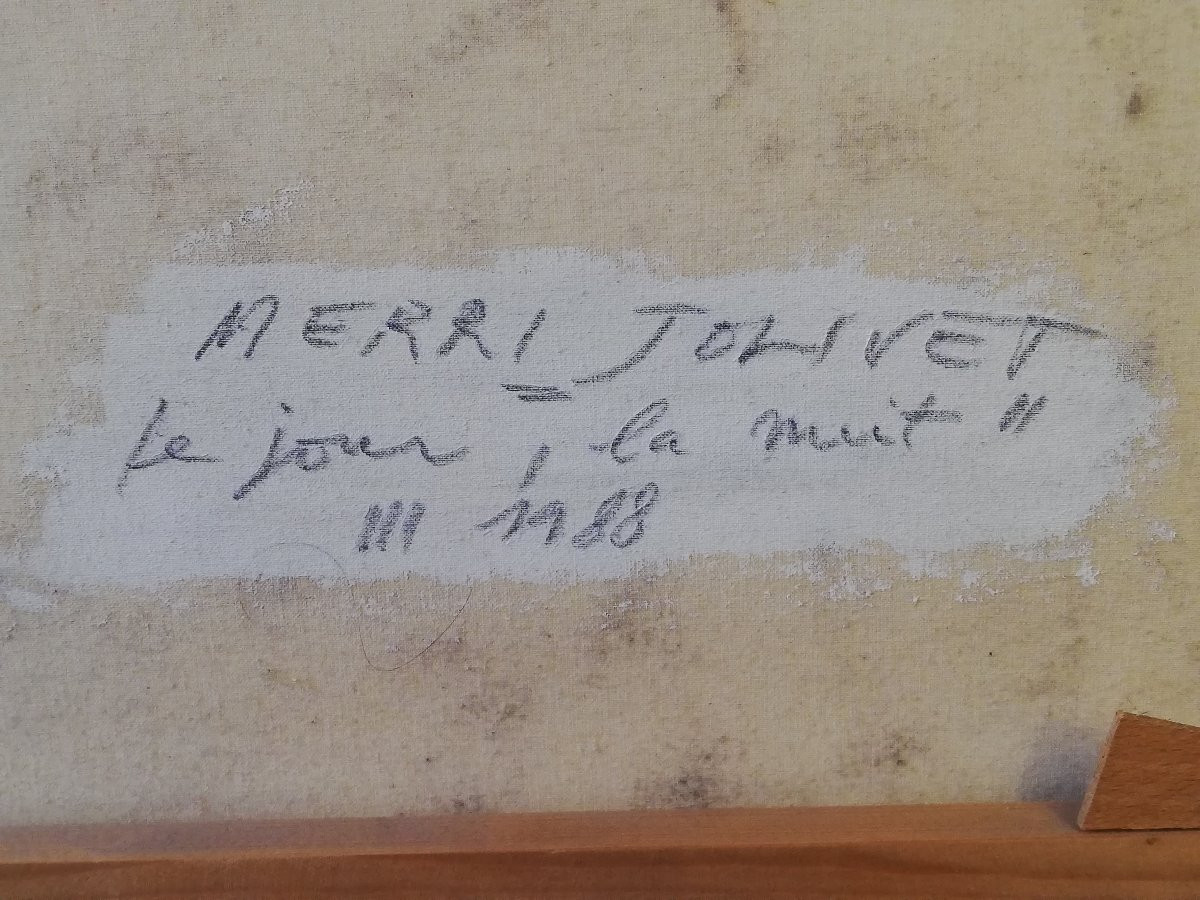 MERRI_JOLIVET
le jour, la nuit "
III 1988